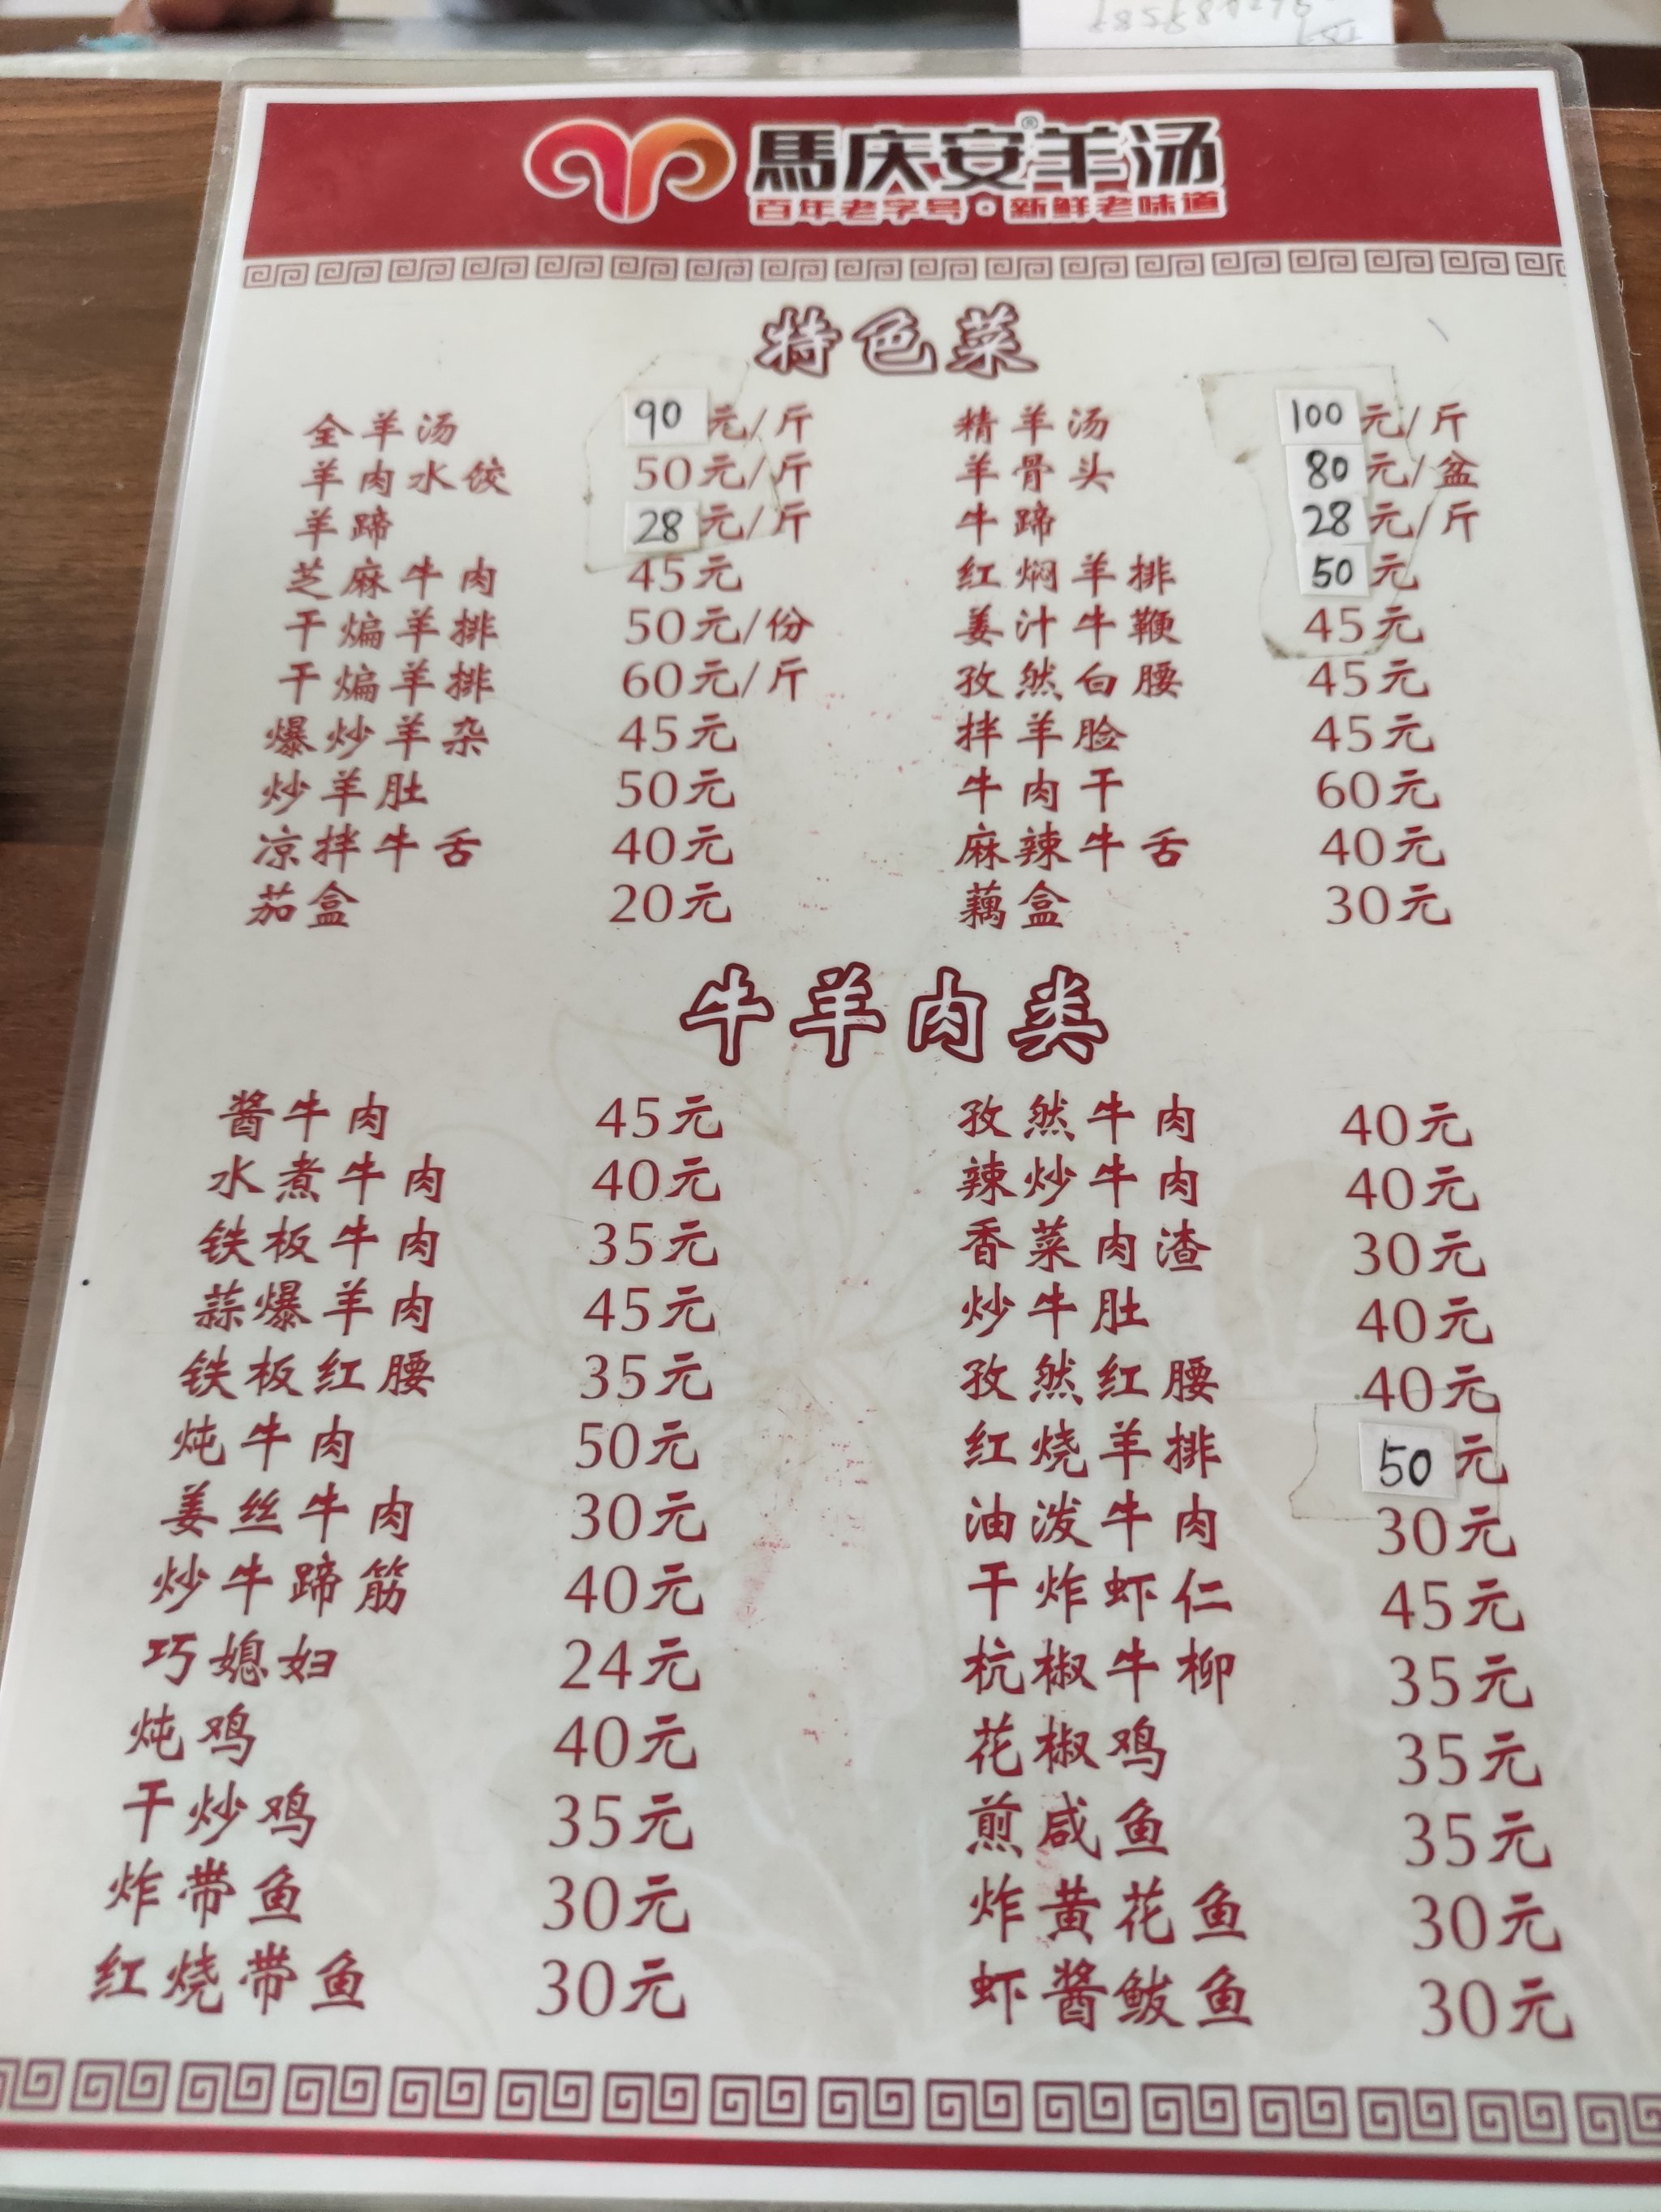 馬庆安羊汤®
百年老字号·新鲜老味道
特色菜
全羊汤 90元/斤 精羊汤 100元/斤
羊肉水饺 50元/斤 羊骨头 80元/盆
羊蹄 28元/斤 牛蹄 28元/斤
芝麻牛肉 45元 红焖羊排 50元
干煸羊排 50元/份 姜汁牛鞭 45元
干煸羊排 60元/斤 孜然白腰 45元
爆炒羊杂 45元 拌羊脸 45元
炒羊肚 50元 牛肉干 60元
凉拌牛舌 40元 麻辣牛舌 40元
茄盒 20元 藕盒 30元
牛羊肉类
酱牛肉 45元 孜然牛肉 40元
水煮牛肉 40元 辣炒牛肉 40元
铁板牛肉 35元 香菜肉渣 30元
蒜爆羊肉 45元 炒牛肚 40元
铁板红腰 35元 孜然红腰 40元
炖牛肉 50元 红烧羊排 50元
姜丝牛肉 30元 油泼牛肉 30元
炒牛蹄筋 40元 干炸虾仁 45元
巧媳妇 24元 杭椒牛柳 35元
炖鸡 40元 花椒鸡 35元
干炒鸡 35元 煎咸鱼 35元
炸带鱼 30元 炸黄花鱼 30元
红烧带鱼 30元 虾酱鲅鱼 30元